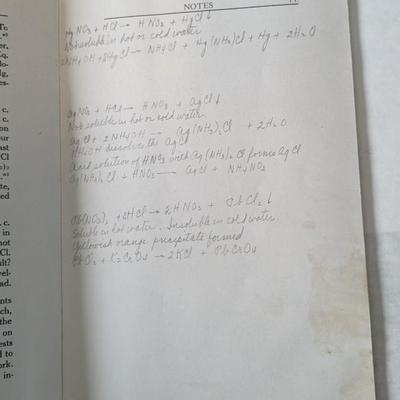 NOTES
HgNO3 + HCl → HNO3 + HgCl↓
Not soluble in hot or cold water
2NH4OH + 2HgCl → NH4Cl + Hg(NH2)Cl + Hg + 2H2O
AgNO3 + HCl → HNO3 + AgCl↓
Not soluble in hot or cold water.
AgCl + 2NH4OH → Ag(NH3)2Cl + 2H2O
NH4OH dissolves the AgCl
Acid solution of HNO3 with Ag(NH3)2Cl forms AgCl
Ag(NH3)2Cl + HNO3 → AgCl + NH4NO3
Pb(NO3)2 + 2HCl → 2HNO3 + PbCl2↓
Soluble in hot water. Insoluble in cold water.
Yellowish orange precipitate formed
PbCl2 + K2CrO4 → 2KCl + PbCrO4